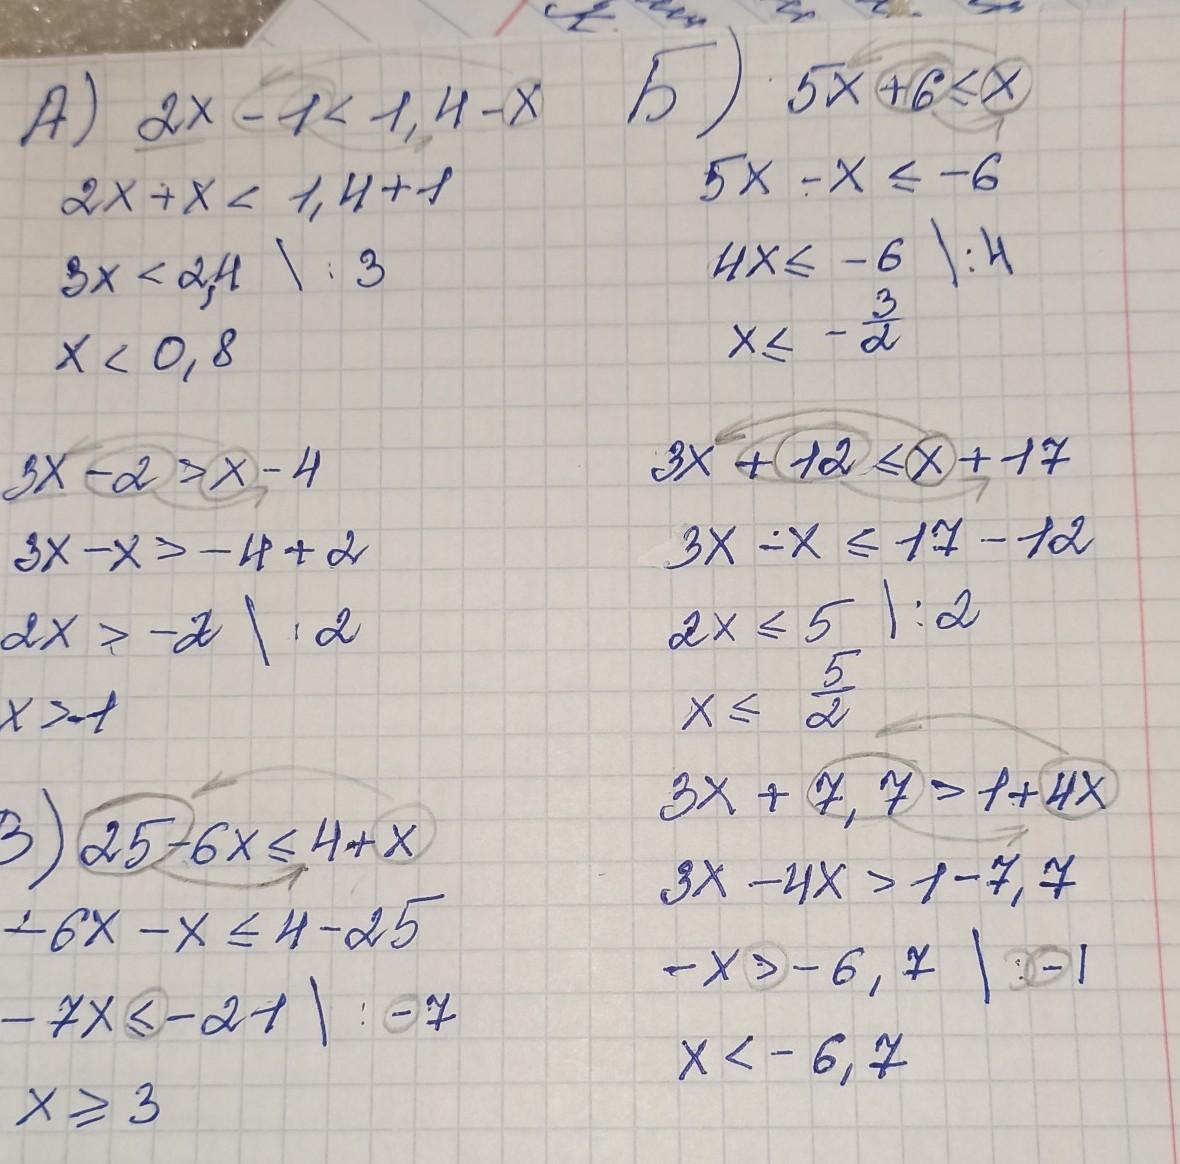 А) 2x - 1 < 1,4 - x
2x + x < 1,4 + 1
3x < 2,4 \ : 3
x < 0,8
3x - 2 > x - 4
3x - x > -4 + 2
2x > -2 \ : 2
x > -1
В) 25 - 6x ≤ 4 + x
-6x - x ≤ 4 - 25
-7x ≤ -21 \ : -7
x ≥ 3
Б) 5x + 6 ≤ x
5x - x ≤ -6
4x ≤ -6 \ : 4
x ≤ - 3/2
3x + 12 ≤ x + 17
3x - x ≤ 17 - 12
2x ≤ 5 \ : 2
x ≤ 5/2
3x + 7,7 > 1 + 4x
3x - 4x > 1 - 7,7
-x > -6,7 \ : -1
x < -6,7